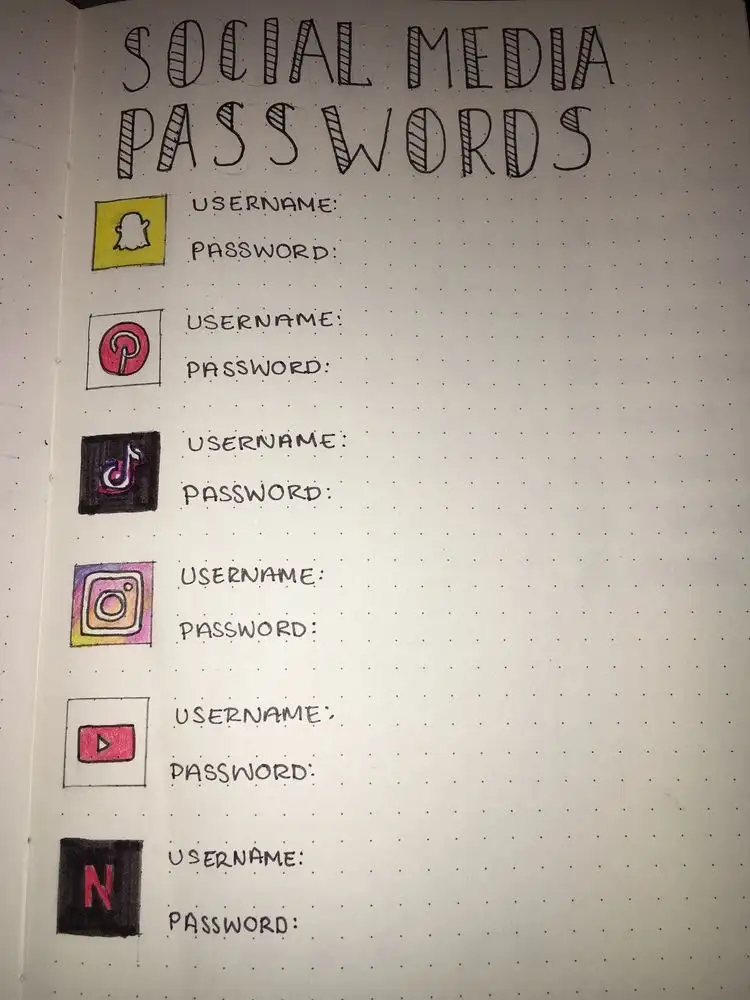 SOCIAL MEDIA
PASSWORDS
USERNAME:
PASSWORD:
USERNAME:
PASSWORD:
USERNAME:
PASSWORD:
USERNAME:
PASSWORD:
USERNAME:
PASSWORD:
N
USERNAME:
PASSWORD: